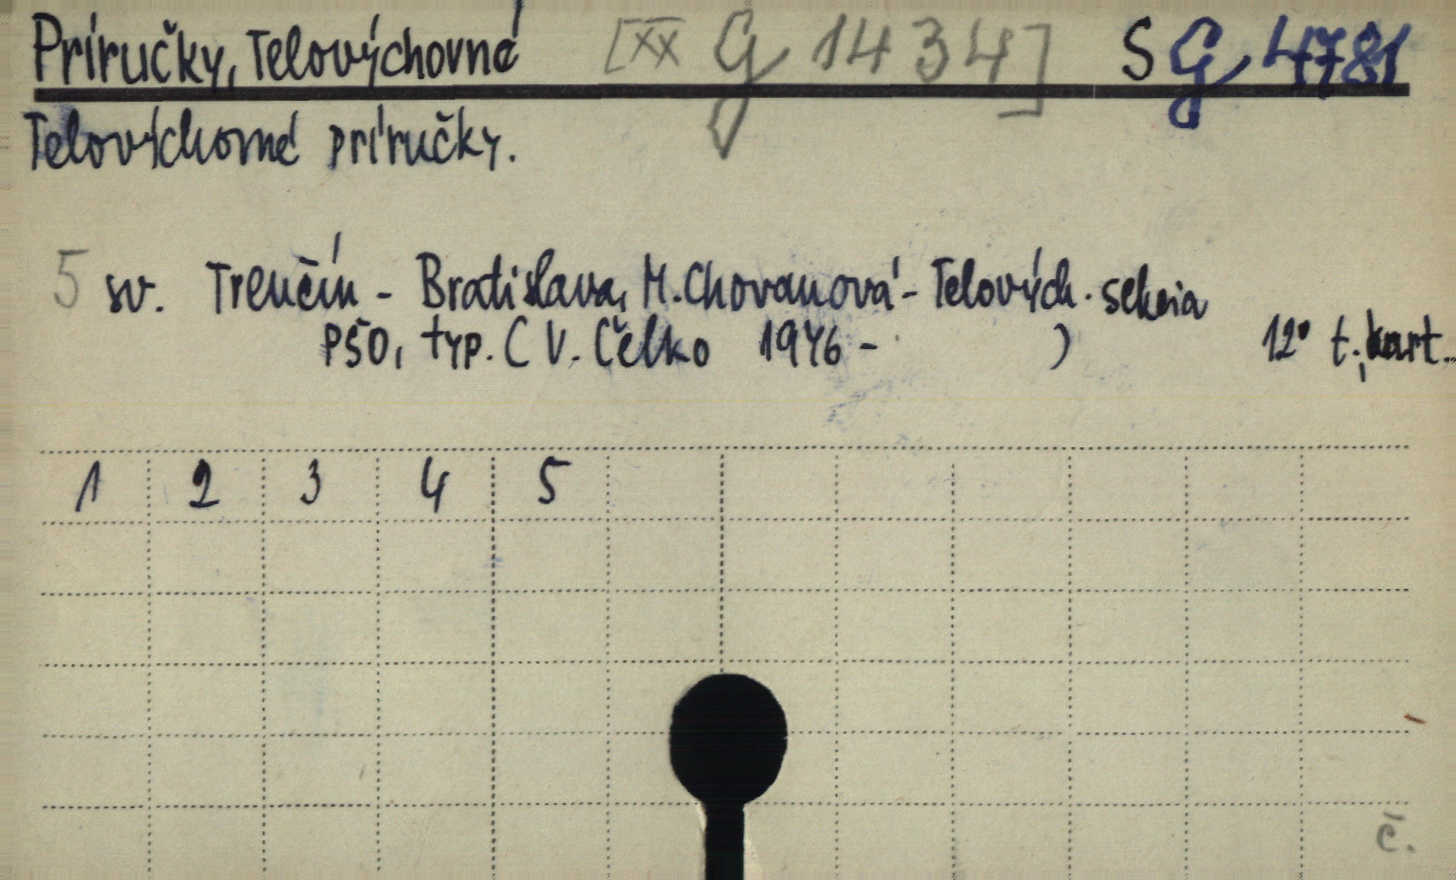 Príručky, Telovýchovné [XX G 1434] S G 4781
Telovýchovné príručky.
5 sv. Trenčín - Bratislava, M. Chovanová - Telových. sekcia
PSO, typ. ( V. Čelko 1946 - ) 12° t., kart.
1 2 3 4 5
č.